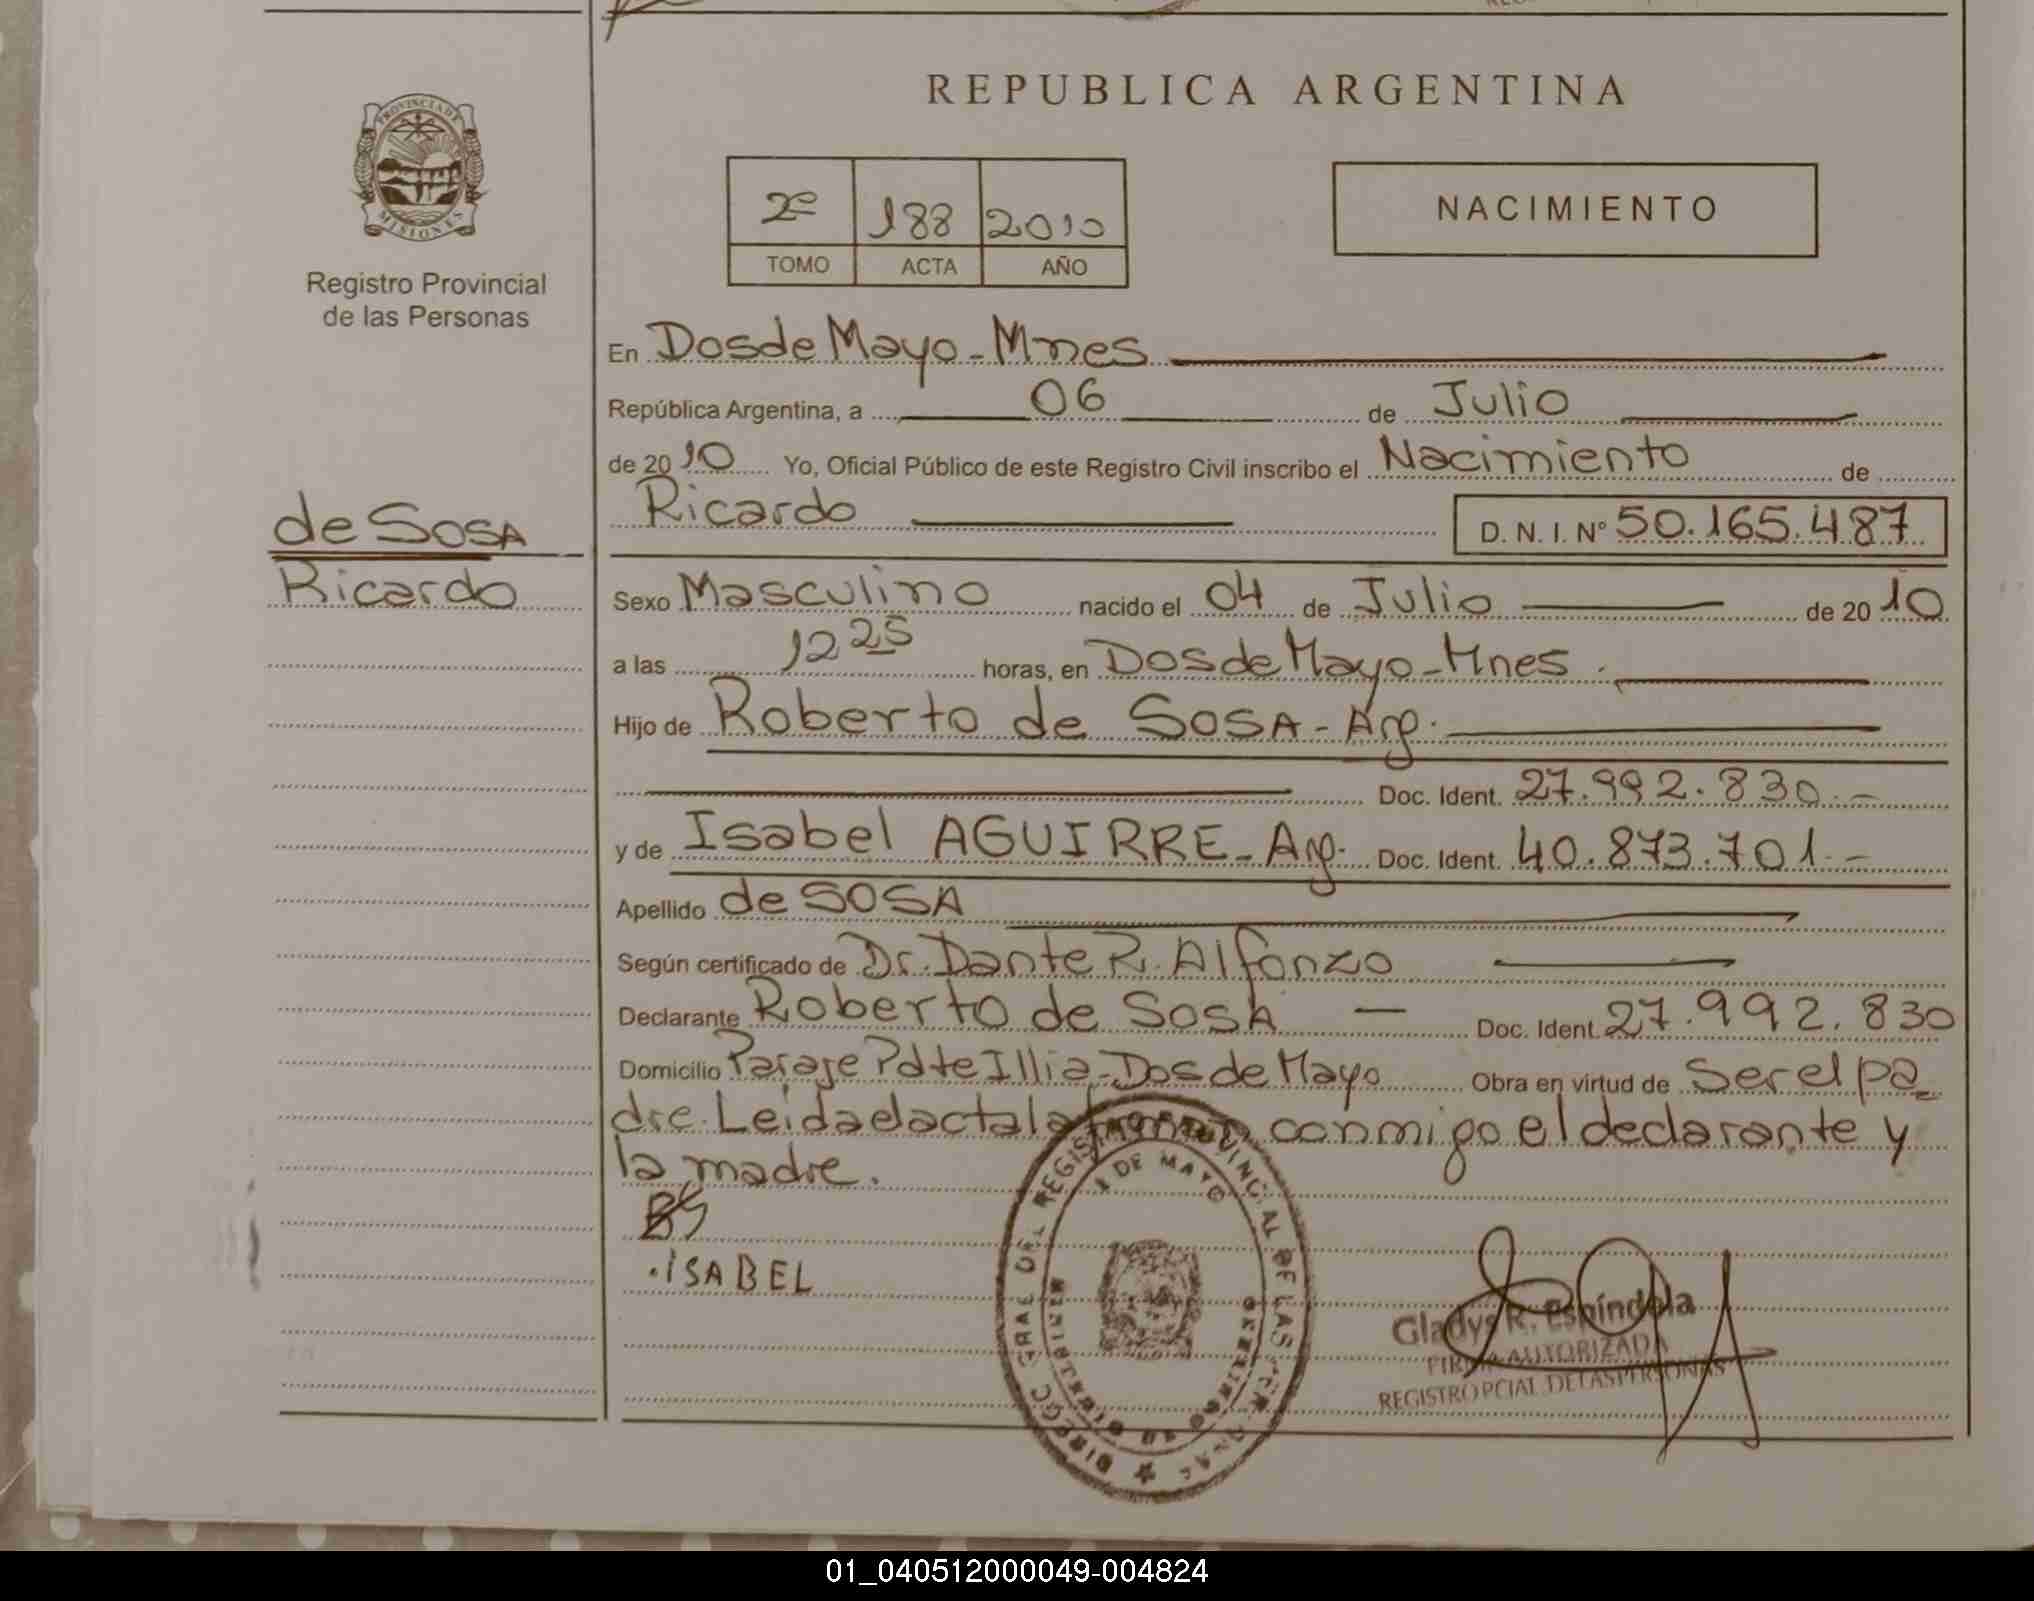 REPUBLICA ARGENTINA
PROVINCIA DE
MISIONES
Registro Provincial
de las Personas
2º 188 2010
TOMO ACTA AÑO
NACIMIENTO
En Dos de Mayo - Mnes
República Argentina, a 06 de Julio
de 2010 Yo, Oficial Público de este Registro Civil inscribo el Nacimiento de
Ricardo D. N. I. Nº 50.165.487
de SOSA
Ricardo
Sexo Masculino nacido el 04 de Julio de 2010
a las 12 25 horas, en Dos de Mayo - Mnes.
Hijo de Roberto de SOSA - Arg.
Doc. Ident. 27.992.830.-
y de Isabel AGUIRRE - Arg. Doc. Ident. 40.873.701.-
Apellido de SOSA
Según certificado de Dr. Dante R. Alfonzo
Declarante Roberto de Sosa - Doc. Ident. 27.992.830
Domicilio Paraje Pdte Illia - Dos de Mayo Obra en virtud de Ser el pa
dre. Leida el acta la firman conmigo el declarante y
la madre.
.ISABEL
Gladys R. Espíndola
FIRMA AUTORIZADA
REGISTRO PCIAL DE LAS PERSONAS
01_040512000049-004824